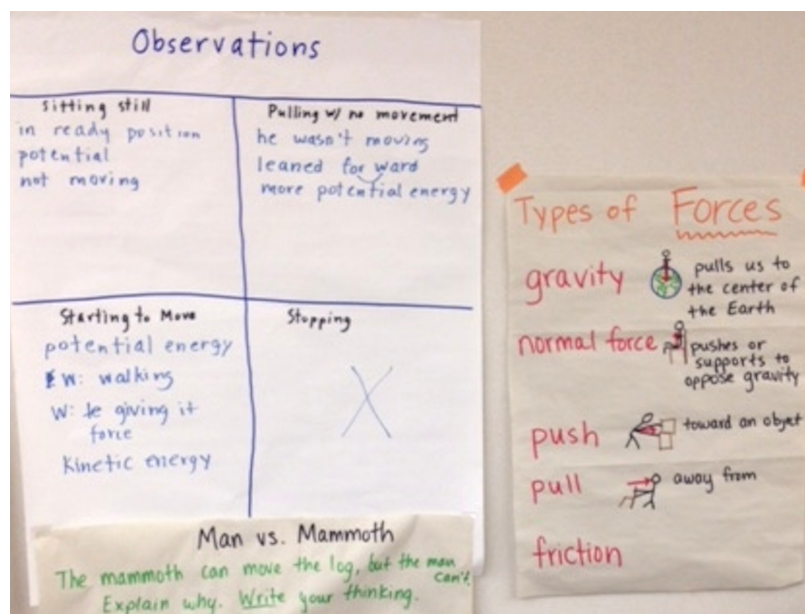 Observations
Sitting still
in ready position
potential
not moving
Pulling w/ no movement
he wasn't moving
leaned for ward
more potential energy
Starting to Move
potential energy
W: walking
W: te giving it
force
Kinetic energy
Stopping
Man vs. Mammoth
The mammoth can move the log, but the man
can't.
Explain why. Write your thinking.
Types of Forces
gravity
pulls us to
the center of
the Earth
normal force
pushes or
supports to
oppose gravity
push
toward an objet
pull
away from
friction